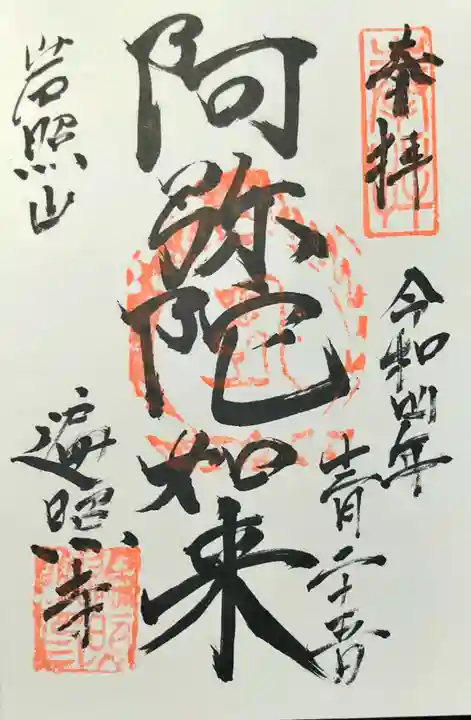 奉拝
令和四年
十一月二十五日
阿弥陀如来
岩照山
遍照寺